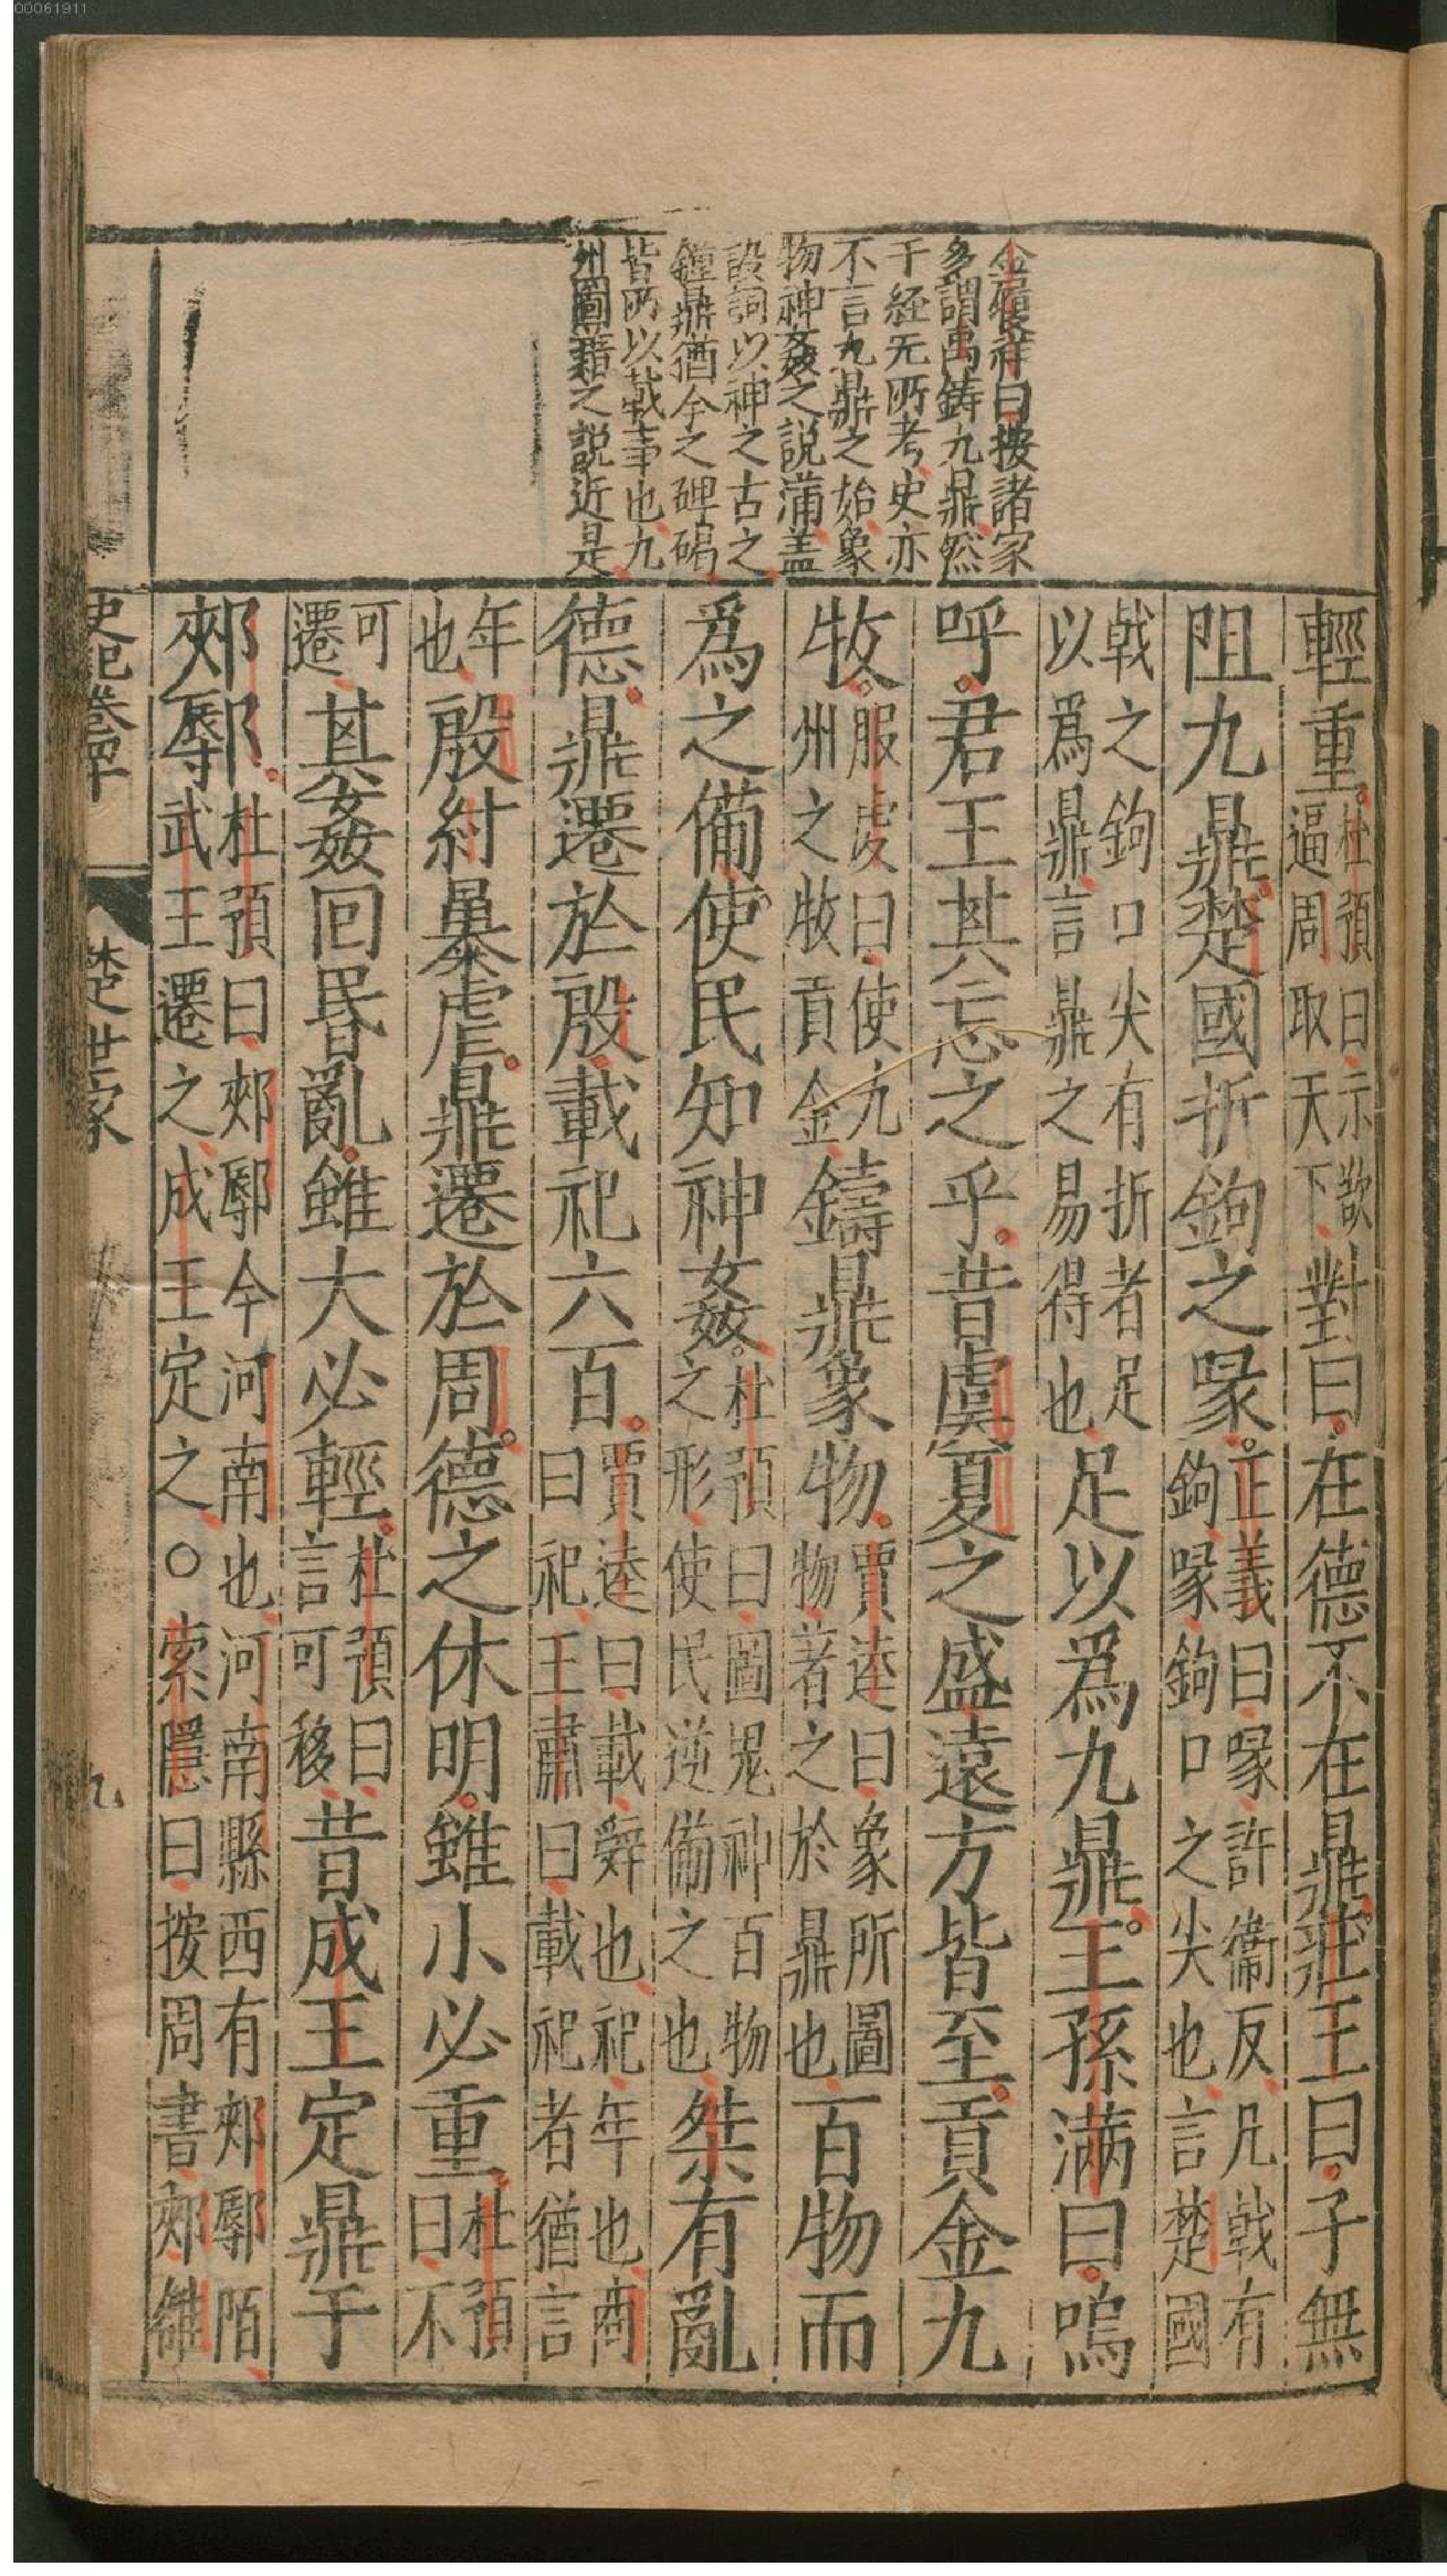 00061911
金履祥曰按諸家
多謂禹鑄九鼎然
于経无所考史亦
不言九鼎之始象
物神姦之説蒲盖
設詞以神之古之
鐘鼎猶今之碑碣
皆所以載事也九
州圖籍之説近是
輕重。杜預曰示欲逼周取天下對曰。在德不在鼎。莊王曰。子無
阻九鼎。楚國折鉤之喙。正義曰喙許衛反凡戟有鉤喙鉤口之尖也言楚國
戟之鉤口尖有折者足以爲鼎言鼎之易得也足以爲九鼎。王孫滿曰。嗚
呼。君王其忘之乎。昔虞夏之盛遠方皆至。貢金九
牧。服虔曰使九州之牧貢金鑄鼎象物。賈逵曰象所圖物著之於鼎也百物而
爲之備。使民知神姦。杜預曰圖鬼神百物之形使民逆備之也桀有亂
德。鼎遷於殷。載祀六百。賈逵曰載辤也祀年也商曰祀王肅曰載祀者猶言
年也殷紂暴虐。鼎遷於周。德之休明。雖小必重。杜預曰不
可遷其姦回昬亂。雖大必輕。杜預曰言可移昔成王定鼎于
郟鄏。杜預曰郟鄏今河南也河南縣西有郟鄏陌武王遷之成王定之○索隱曰按周書郟雒
史記卷四十
楚世家
九